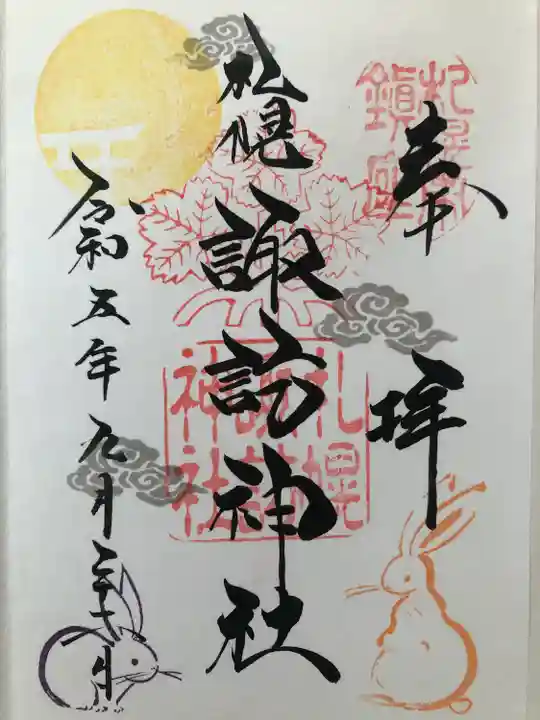 奉拝
鎮座
札幌諏訪神社
札幌
諏訪
神社
令和五年九月二十